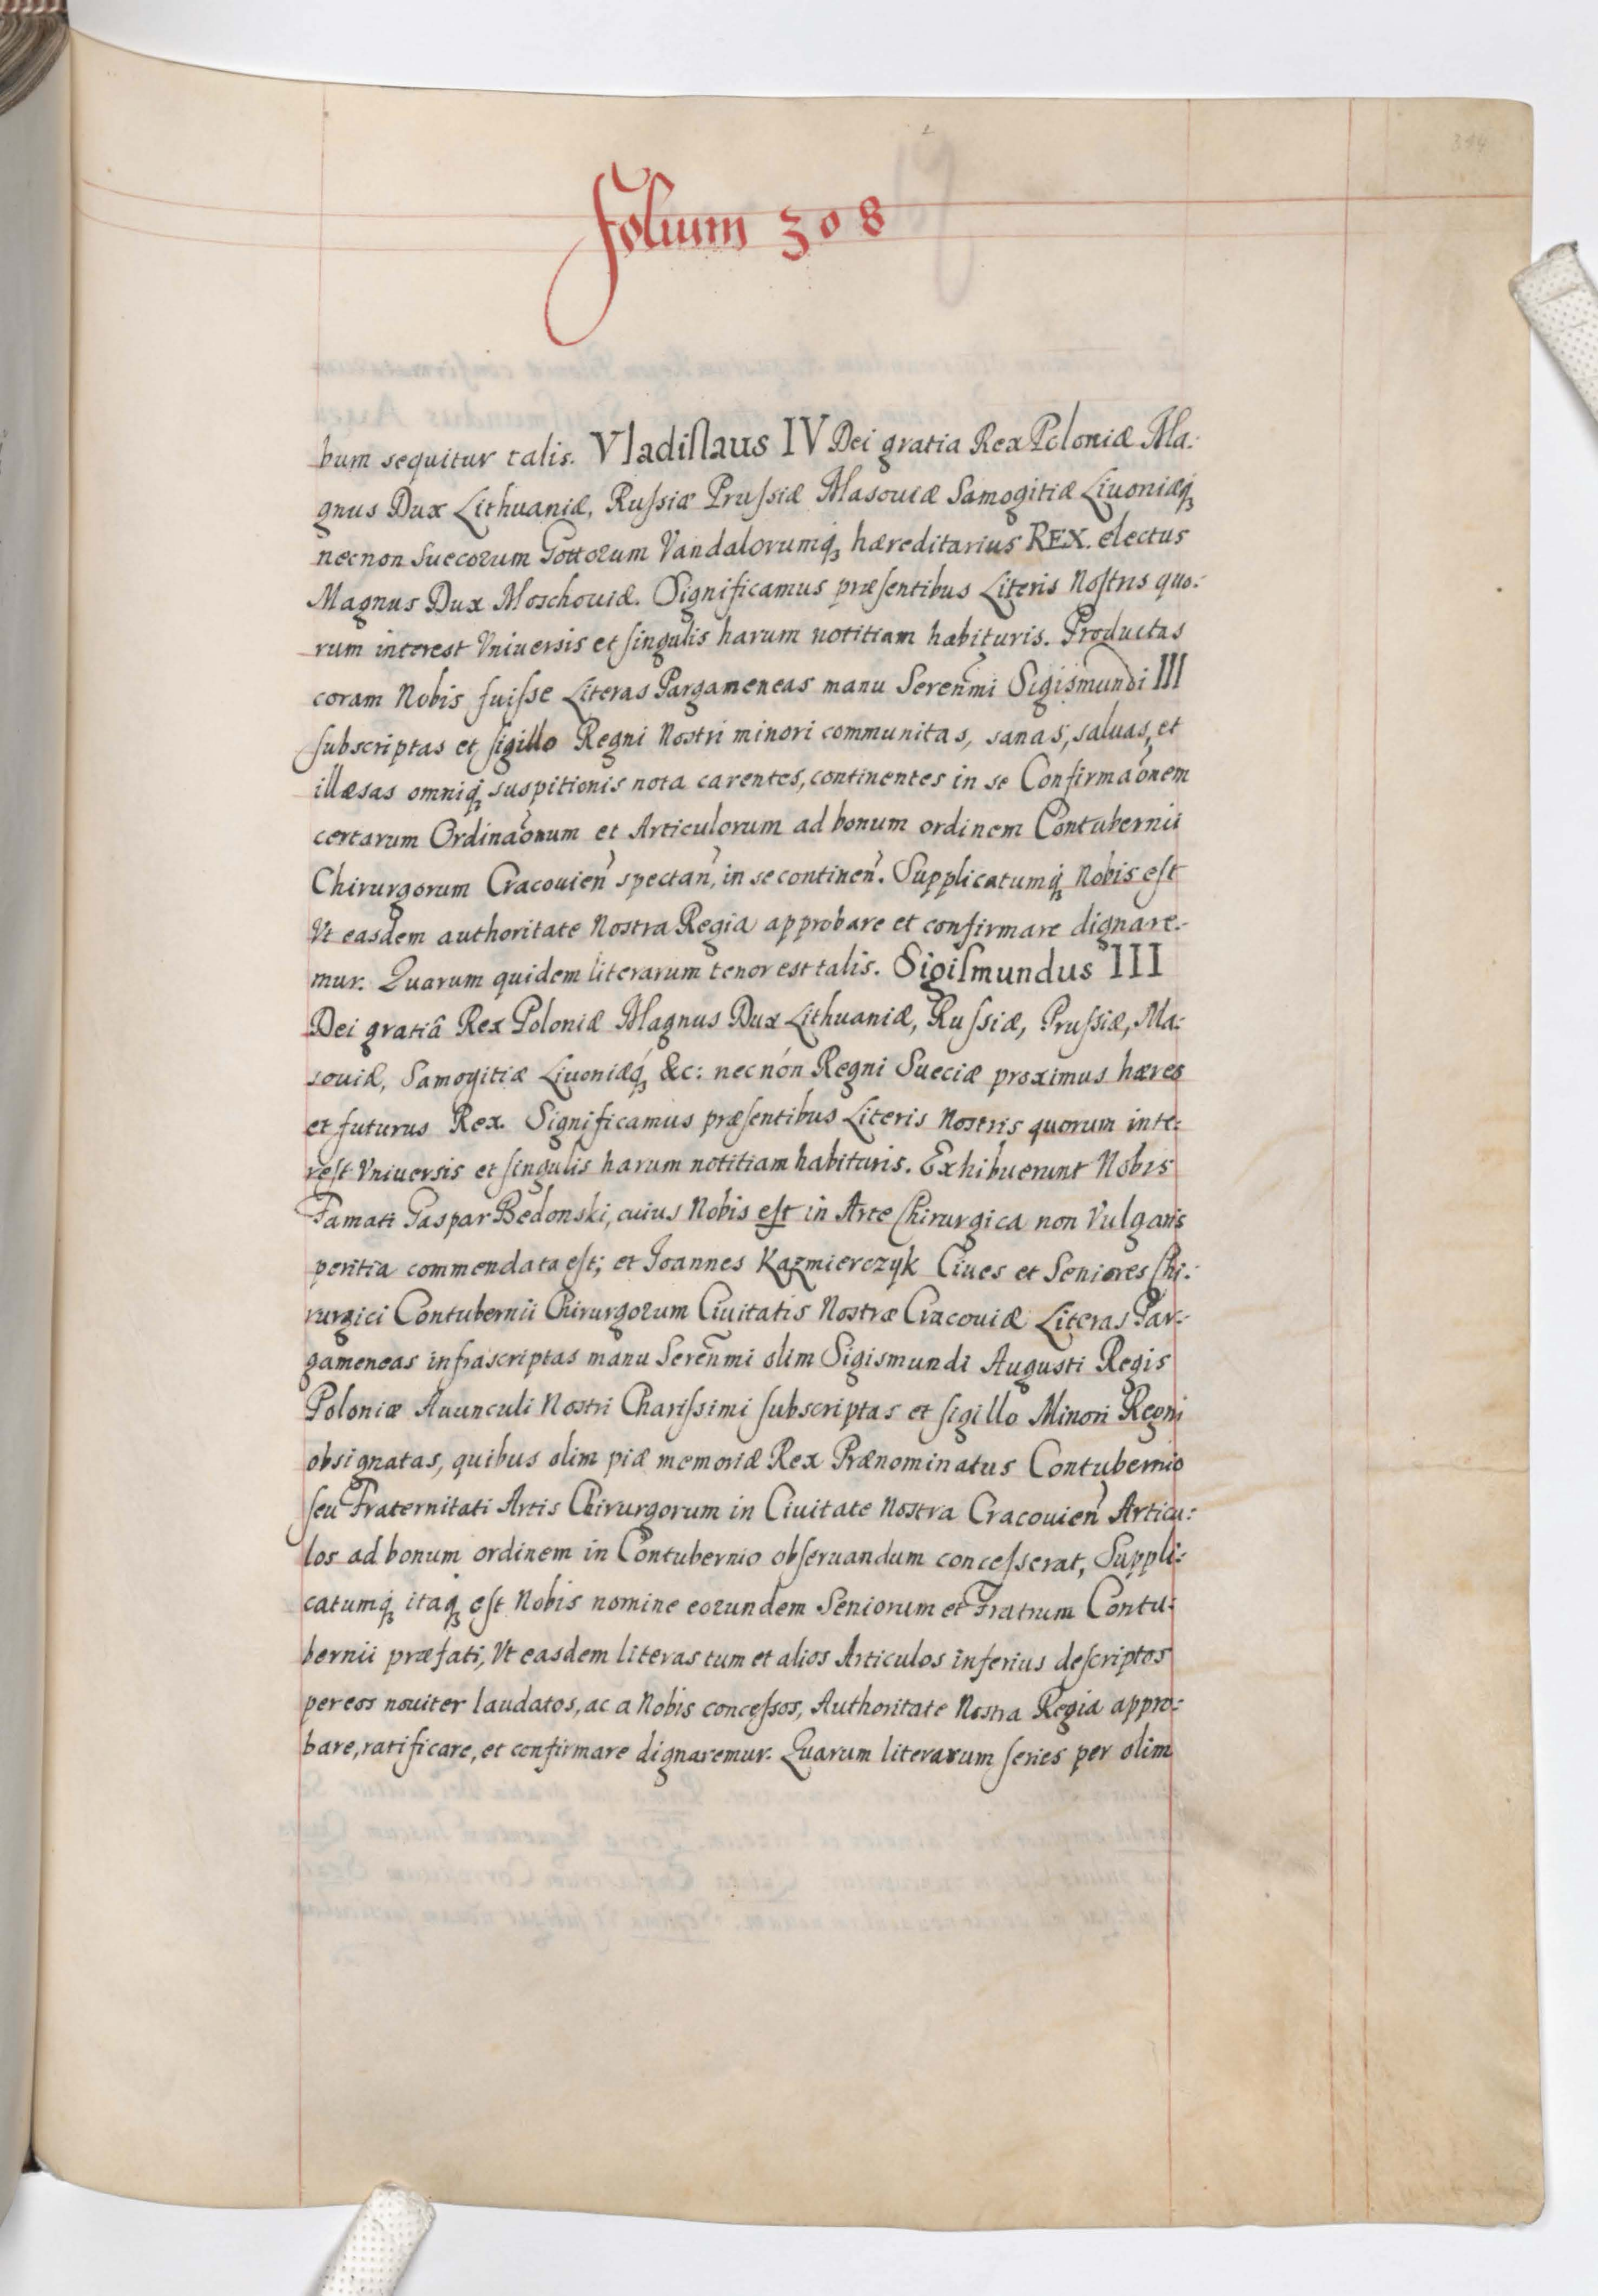 314
Folium 308
bum sequitur talis. Vladiſlaus IV Dei gratia Rex Poloniæ Ma:
gnus Dux Lithuaniæ, Ruſsiæ Pruſsiæ Masouiæ Samogitiæ Liuoniæq́
necnon Suecorum Gottorum Vandalorumq́ hæreditarius REX. electus
Magnus Dux Moschouiæ. Significamus præſentibus Literis Noſtris quo:
rum interest Vniuersis et ſingulis harum notitiam habituris. Productas
coram Nobis fuiſse Literas Pargameneas manu Sereñmi Sigismundi III
ſubscriptas et ſigillo Regni Nostri minori communitas, sanas, saluas, et
illæsas omniq́ suspitionis nota carentes, continentes in se Confirmaõnem
certarum Ordinaõnum et Articulorum ad bonum ordinem Contubernii
Chirurgorum Cracouien̄ spectan̄, in se continen̄. Supplicatumq́ Nobis eſt
Vt easdem authoritate Nostra Regia approbare et confirmare dignare:
mur. Quarum quidem literarum tenor est talis. Sigiſmundus III
Dei gratiâ Rex Poloniæ Magnus Dux Lithuaniæ, Ruſsiæ, Pruſsiæ, Ma:
souiæ, Samogitiæ Liuoniæq́ &c: necnón Regni Sueciæ proximus hæres
et futurus Rex. Significamus præſentibus Literis Nostris quorum inte:
reſt Vniuersis et ſingulis harum notitiam habituris. Exhibuerunt Nobis
Famati Gaspar Bedonski, cuius Nobis eſt in Arte Chirurgica non Vulgaris
peritia commendata eſt; et Joannes Kazmierczyk Ciues et Seniores Chi:
rurgici Contubernii Chirurgorum Ciuitatis Nostræ Cracouiæ Literas Par:
gameneas infrascriptas manu Sereñmi olim Sigismundi Augusti Regis
Poloniæ Auunculi Nostri Chariſsimi ſubscriptas et ſigillo Minori Regni
obsignatas, quibus olim piæ memoriæ Rex Prænominatus Contubernio
ſeu Fraternitati Artis Chirurgorum in Ciuitate Nostra Cracouien̄ Articu:
los ad bonum ordinem in Contubernio obſeruandum conceſserat, Suppli:
catumq́ itaq́ eſt Nobis nomine eorundem Seniorum et Fratrum Contu:
bernii præfati, Vt easdem literas tum et alios Articulos inferius deſcriptos
per eos nouiter laudatos, ac a Nobis conceſsos, Authoritate Nostra Regia appro:
bare, ratificare, et confirmare dignaremur. Quarum literarum ſeries per olim